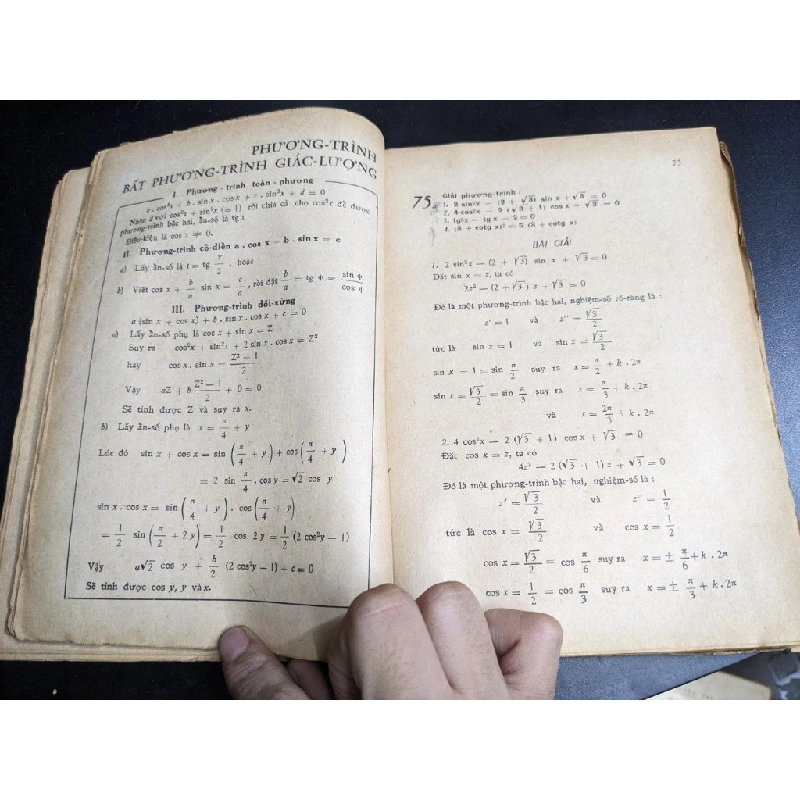 PHƯƠNG-TRÌNH
BẤT PHƯƠNG-TRÌNH GIÁC-LƯỢNG
I. Phương-trình toàn-phương
a.cos²x + b.sin x.cos x + c.sin²x + d = 0
Nhân d với cos²x + sin²x (= 1) rồi chia cả cho cos²x để được
phương-trình bậc hai, ẩn-số là tg x
Điều-kiện là cos x ≠ 0.
II. Phương-trình cổ-điển a.cos x + b.sin x = c
a) Lấy ẩn-số là t = tg x/2, hoặc
b) Viết cos x + b/a sin x = c/a, rồi đặt b/a = tg φ = sin φ / cos φ
III. Phương-trình đối-xứng
a (sin x + cos x) + b.sin x.cos x + c = 0
a) Lấy ẩn-số phụ là cos x + sin x = Z
Suy ra cos²x + sin²x + 2 sin x.cos x = Z²
hay cos x.sin x = (Z² − 1)/2
Vậy aZ + b (Z² − 1)/2 + c = 0
Sẽ tính được Z và suy ra x.
b) Lấy ẩn-số phụ là x = π/4 + y
Lúc đó sin x + cos x = sin (π/4 + y) + cos (π/4 + y)
= 2 sin π/4.cos y = √2 cos y
sin x.cos x = sin (π/4 + y).cos (π/4 + y)
= 1/2 sin (π/2 + 2y) = 1/2 cos 2y = 1/2 (2 cos²y − 1)
Vậy a√2 cos y + b/2 (2 cos²y − 1) + c = 0
Sẽ tính được cos y, y và x.
75
75. Giải phương-trình :
1. 2 sin²x − (2 + √3) sin x + √3 = 0
2. 4 cos²x − 2 (√3 + 1) cos x + √3 = 0
3. tg²x − tg x − 2 = 0
BÀI GIẢI
1. 2 sin²x − (2 + √3) sin x + √3 = 0
Đặt sin x = z, ta có
2z² − (2 + √3) z + √3 = 0
Đó là một phương-trình bậc hai, nghiệm-số rõ-ràng là :
z' = 1 và z'' = √3/2
tức là sin x = 1 và sin x = √3/2
sin x = 1 = sin π/2 suy ra x = π/2 + k.2π
sin x = √3/2 = sin π/3 suy ra x = π/3 + k.2π
và x = 2π/3 + k.2π
2. 4 cos²x − 2 (√3 + 1) cos x + √3 = 0
Đặt cos x = z, ta có
4z² − 2 (√3 + 1) z + √3 = 0
Đó là một phương-trình bậc hai, nghiệm-số là :
z' = √3/2 và z'' = 1/2
tức là cos x = √3/2 và cos x = 1/2
cos x = √3/2 = cos π/6 suy ra x = ± π/6 + k.2π
cos x = 1/2 = cos π/3 suy ra x = ± π/3 + k.2π